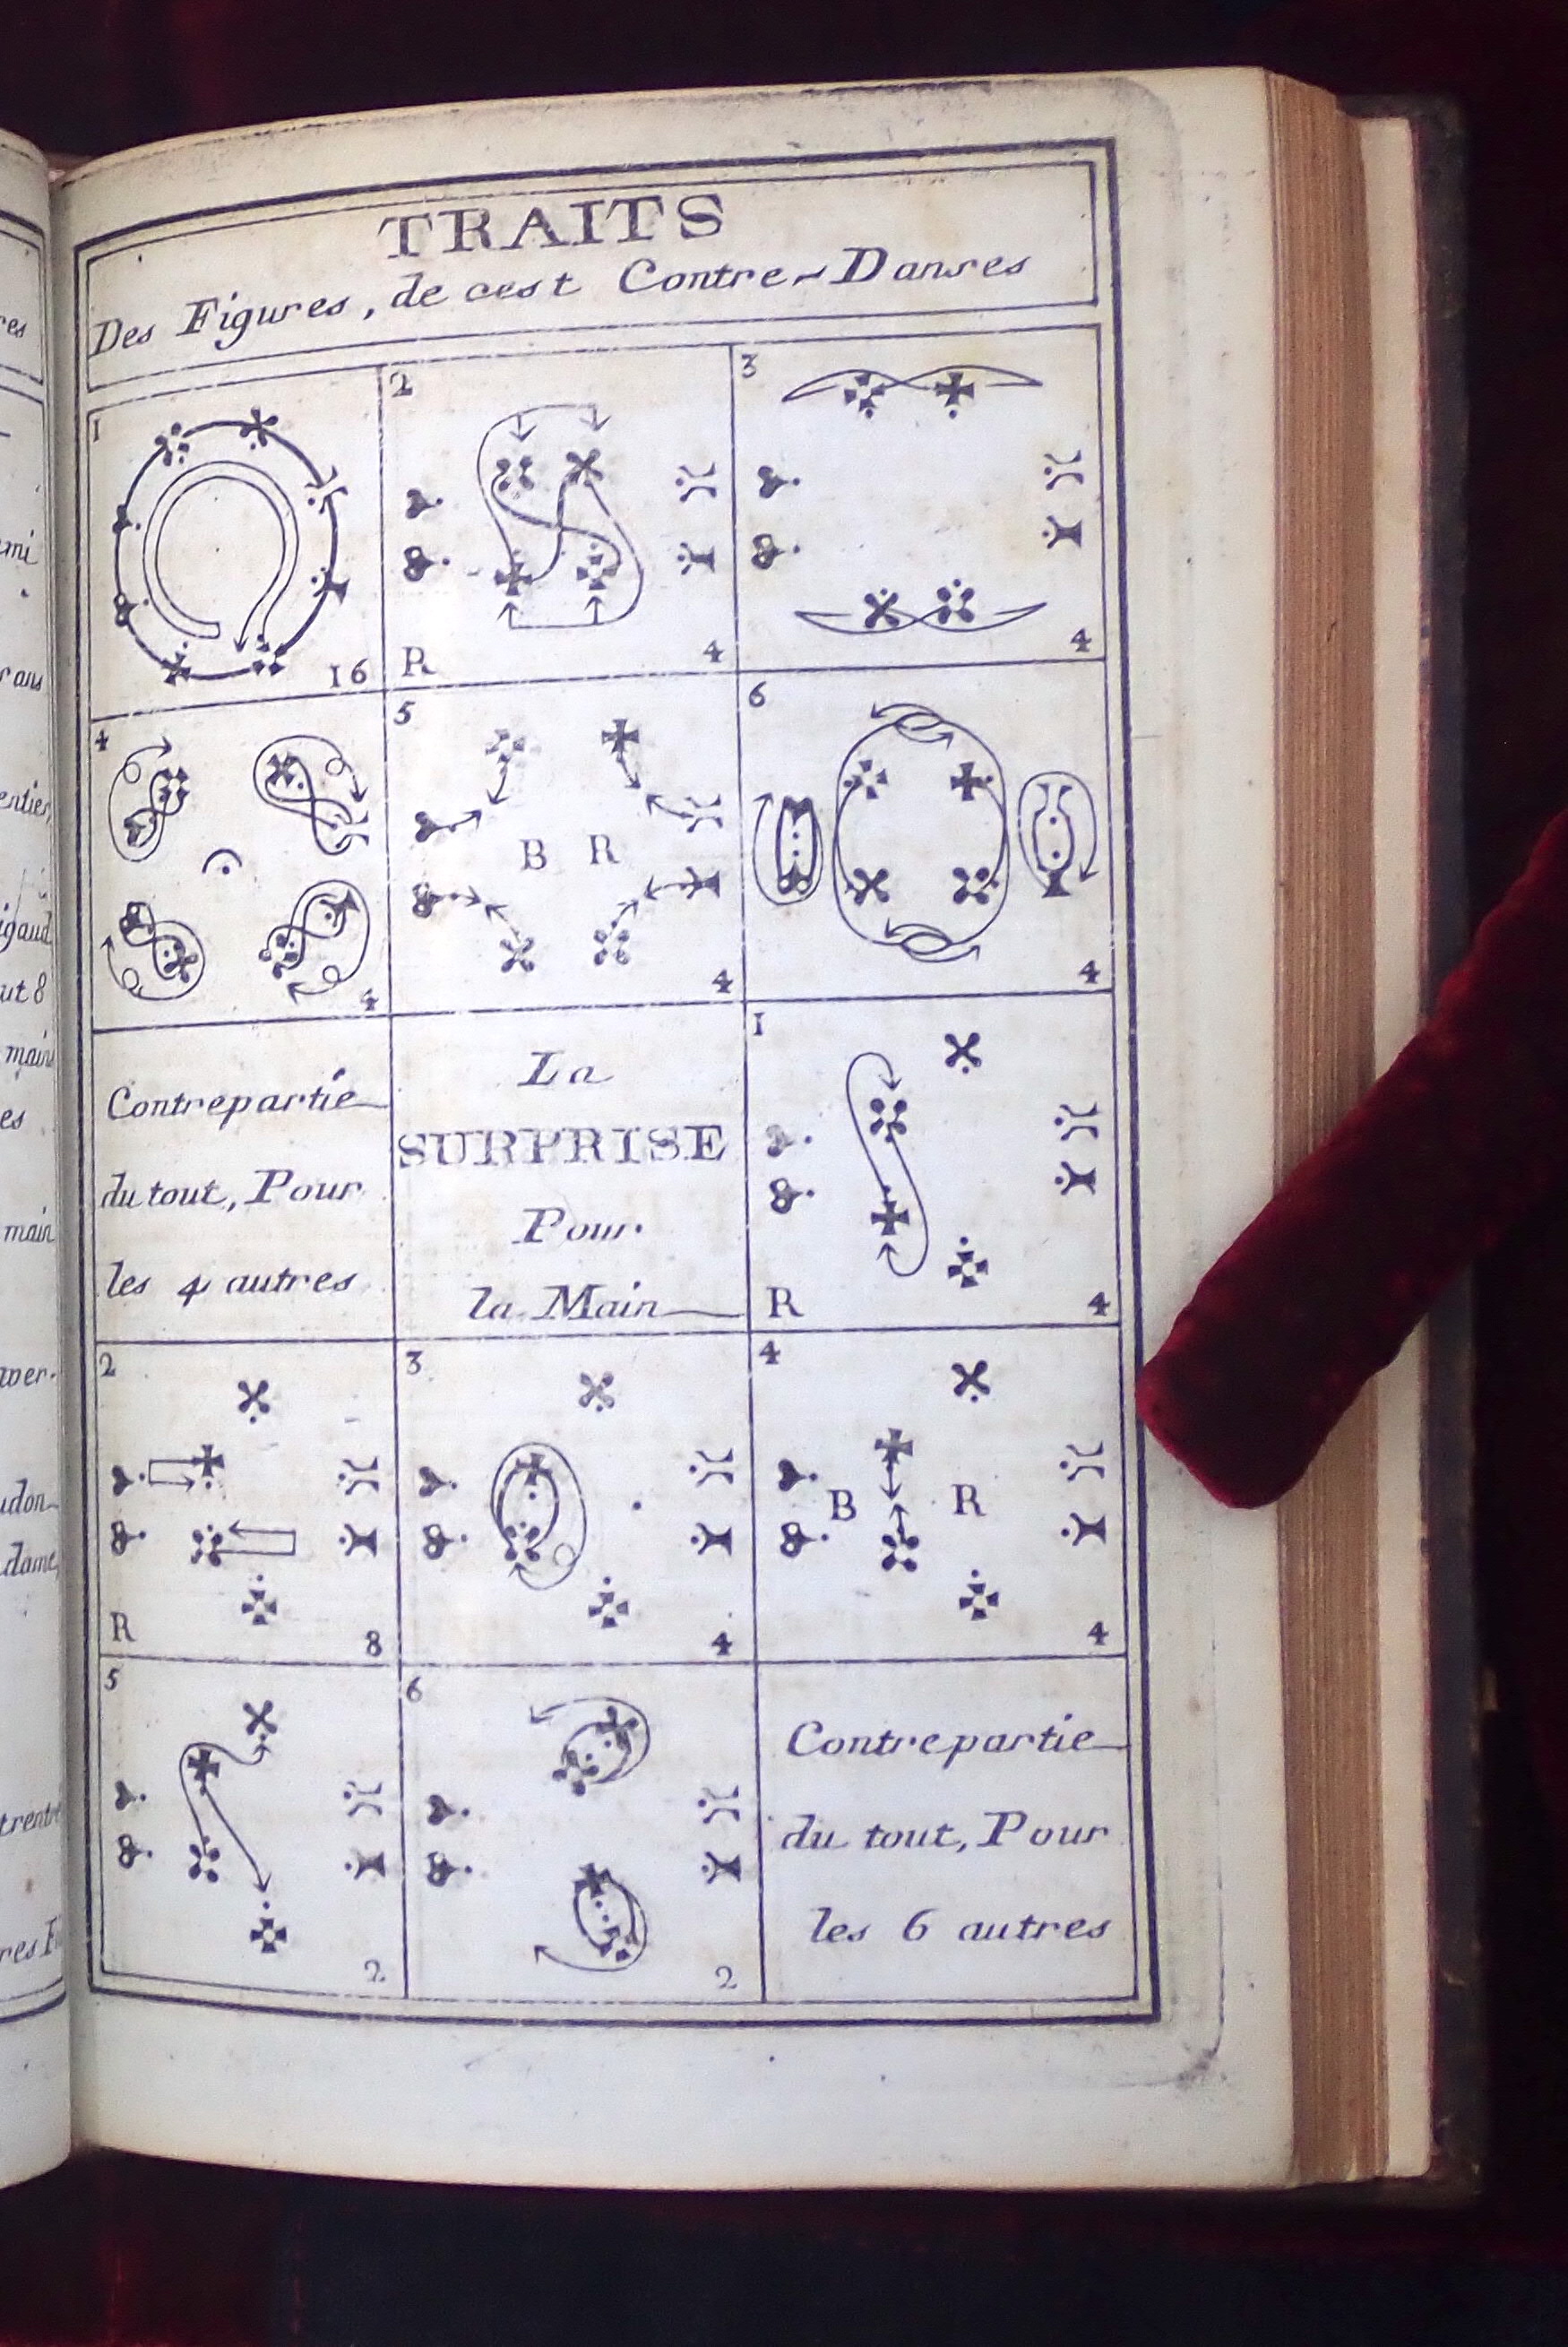 TRAITS
Des Figures, de cest Contre-Danses
1
16
2
R
4
3
4
4
4
5
B R
4
6
4
Contrepartie
du tout, Pour
les 4 autres
La
SURPRISE
Pour
la Main
1
R
4
2
R
8
3
4
4
B R
4
5
2
6
2
Contrepartie
du tout, Pour
les 6 autres